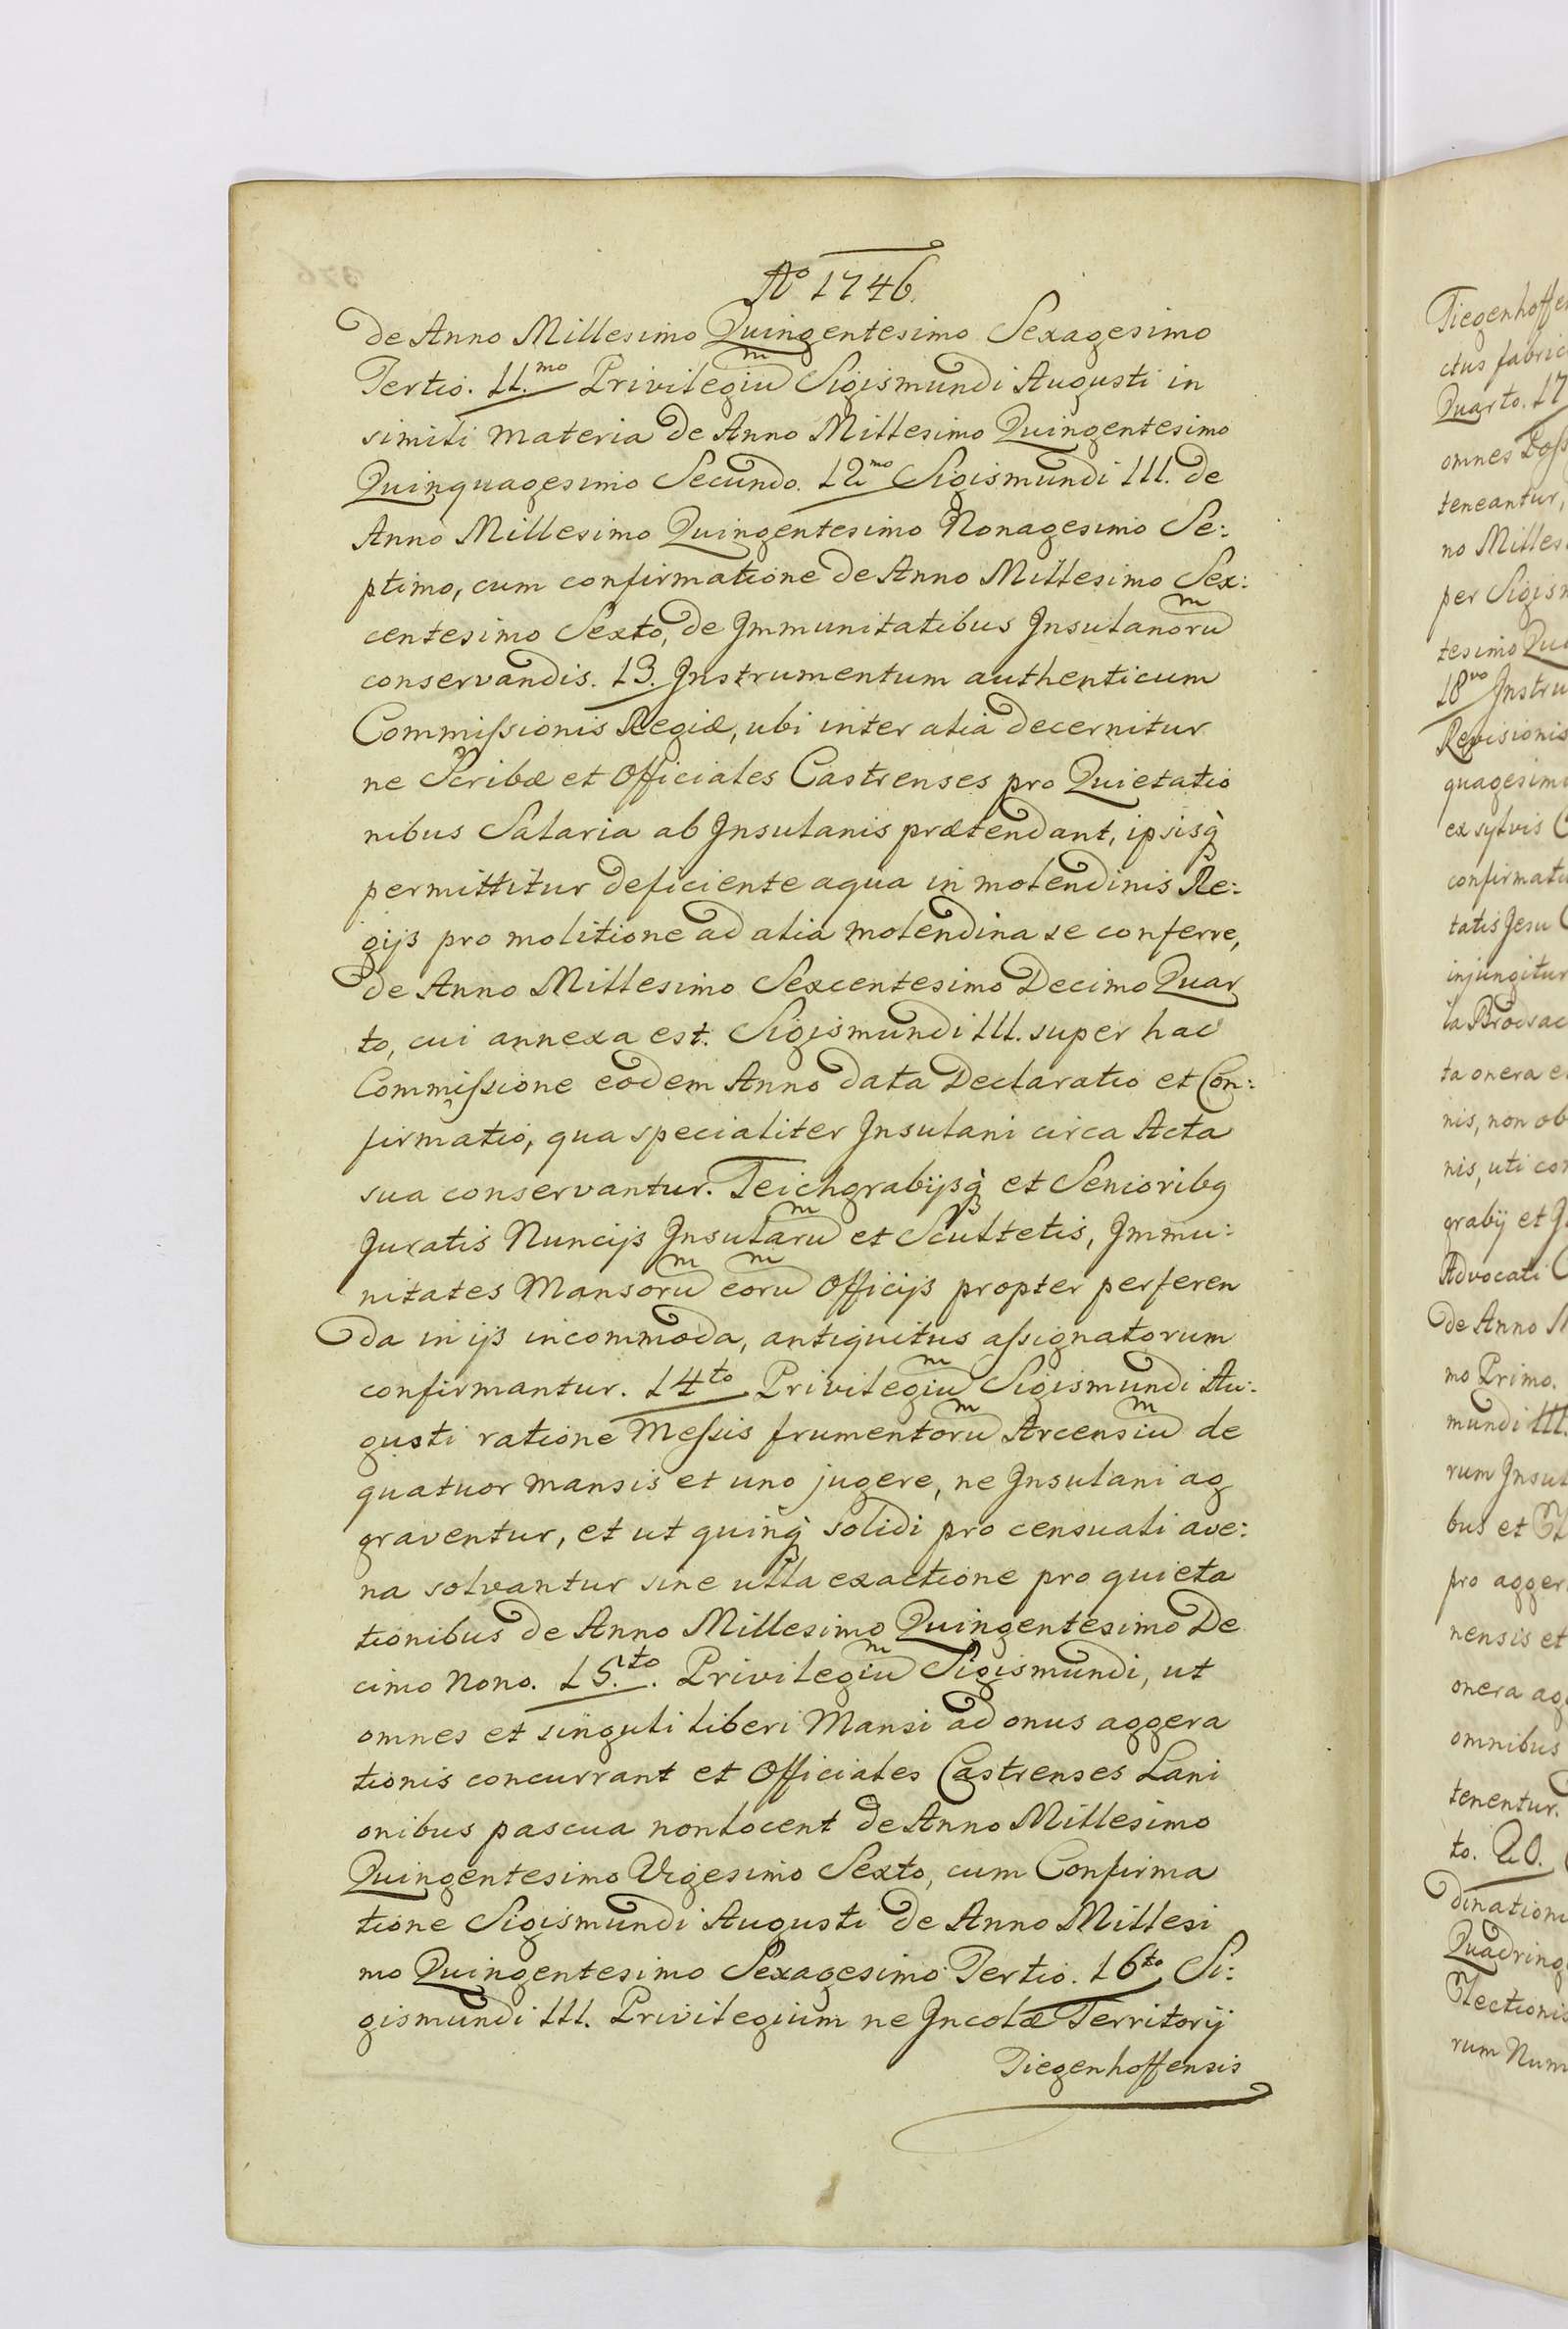 Aº 1746.
de Anno Millesimo Quingentesimo Sexagesimo
Tertio. 11.mo Privilegium Sigismundi Augusti in
simili materia de Anno Millesimo Quingentesimo
Quinquagesimo Secundo. 12mo Sigismundi III. de
Anno Millesimo Quingentesimo Nonagesimo Se:
ptimo, cum confirmatione de Anno Millesimo Sex:
centesimo Sexto, de Immunitatibus Insulanorum
conservandis. 13. Instrumentum authenticum
Commissionis Regiæ, ubi inter alia decernitur
ne Scribæ et Officiales Castrenses pro Quietatio
nibus Salaria ab Insulanis prætendant, ipsisq
permittitur deficiente aqua in molendinis Re:
gijs pro molitione ad alia molendina se conferre,
de Anno Millesimo Sexcentesimo Decimo Quar
to, cui annexa est. Sigismundi III. super hac
Commissione eodem Anno data Declaratio et Con:
firmatio, qua specialiter Insulani circa Acta
sua conservantur. Teichgrabijsq et Seniorib9
Juratis Nuncijs Insularum et Scultetis, Immu:
nitates Mansorum eorum Officijs propter perferen
da in ijs incommoda, antiquitus assignatorum
confirmantur. 14to Privilegium Sigismundi Au:
gusti ratione Messis frumentorum Arcensium de
quatuor mansis et uno jugere, ne Insulani ag
graventur, et ut quinq solidi pro censuali ave:
na solvantur sine ulla exactione pro quieta
tionibus de Anno Millesimo Quingentesimo De
cimo Nono. 15.to. Privilegium Sigismundi, ut
omnes et singuli liberi Mansi ad onus aggera
tionis concurrant et Officiales Castrenses Lani
onibus pascua non locent de Anno Millesimo
Quingentesimo Vigesimo Sexto, cum Confirma
tione Sigismundi Augusti de Anno Millesi
mo Quingentesimo Sexagesimo Tertio. 16to Si:
gismundi III. Privilegium ne Incolæ Territorij
Tiegenhoffensis
Tiegenhoffen
ctus fabric
Quarto. 17
omnes Poss
teneantur,
no Milles
per Sigism
tesimo Qui
18vo Instru
Revisionis
quagesim
ex sylvis C
confirmat
tatis Jesu C
injungitur
la Brodsac
ta onera e
nis, non ob
nis, uti con
grabij et J
Advocati C
de Anno M
mo Primo.
mundi III.
rum Insul
bus et El
pro agger
nensis et
onera agg
omnibus
tenentur.
to. 20.
dination
Quadring
Electionis
rum Num